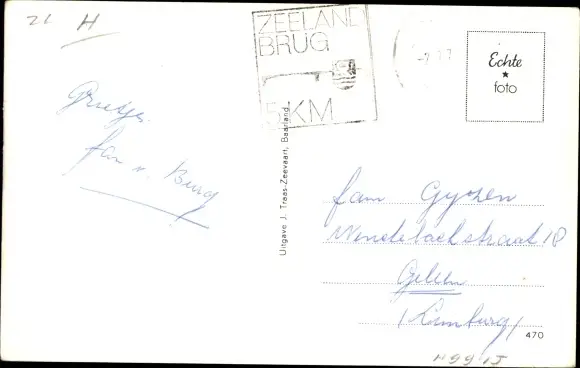 21 H
ZEELAND
BRUG
5 KM
Echte
foto
Groetjes
fam v. Burg
Uitgave J. Traas-Zeevaart, Baarland
fam Gyzen
18
Geleen
(Limburg)
470
N99 15